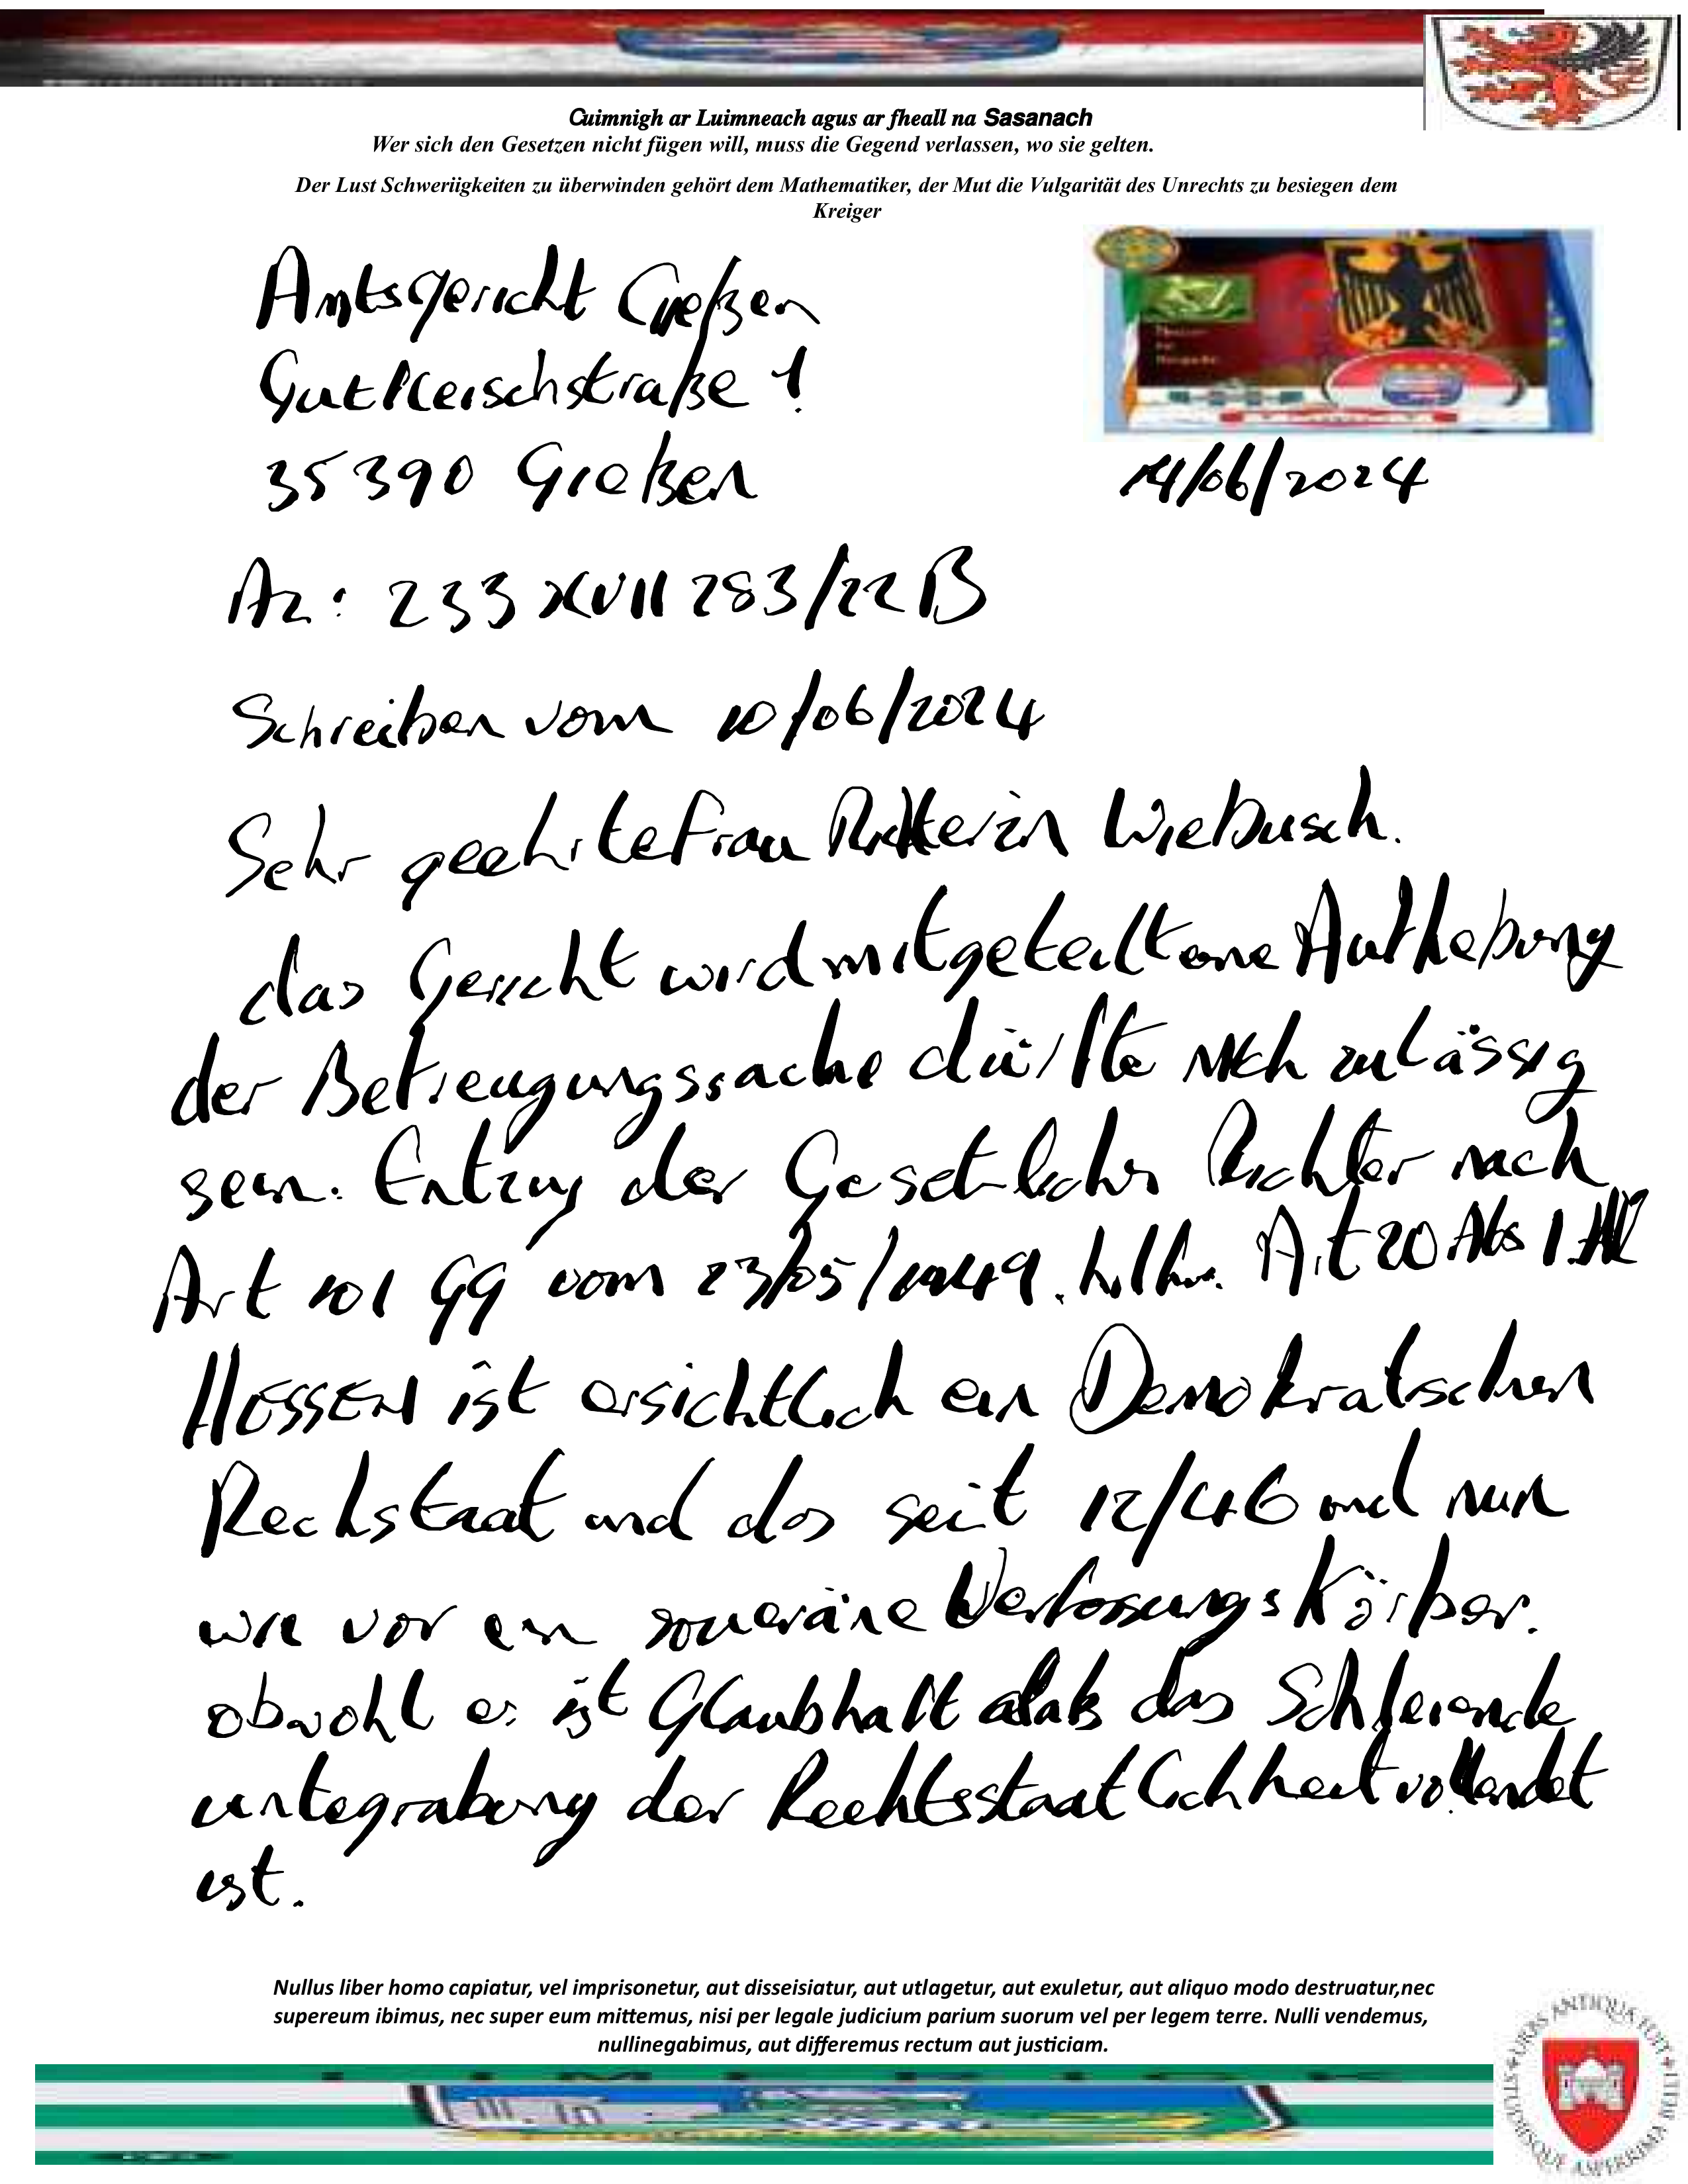 Cuimnigh ar Luimneach agus ar fheall na Sasanach
Wer sich den Gesetzen nicht fügen will, muss die Gegend verlassen, wo sie gelten.
Der Lust Schweriigkeiten zu überwinden gehört dem Mathematiker, der Mut die Vulgarität des Unrechts zu besiegen dem
Kreiger
Amtsgericht Gießen
Gutfleischstraße 1
35390 Gießen
14/06/2024
Az: 233 XVII 283/22 B
Schreiben vom 10/06/2024
Sehr geehrte Frau Richterin Wiebusch.
das Gericht wird mitgeteilt eine Aufhebung
der Betreugungssache dürfte nich zulässig
sein. Entzug der Gesetzlicher Richter nach
Art 101 GG vom 23/05/1949. Art 20 Abs 1.
HESSEN ist ersichtlich ein Demokratischen
Rechstaat und das seit 12/46 und nun
wie vor ein souveräne Verfassungs Körber.
obwohl es ist Glaubhaft das Schleiende
untegrabung der Rechtsstaatlichkeit vollendet
ist.
Nullus liber homo capiatur, vel imprisonetur, aut disseisiatur, aut utlagetur, aut exuletur, aut aliquo modo destruatur,nec
supereum ibimus, nec super eum mittemus, nisi per legale judicium parium suorum vel per legem terre. Nulli vendemus,
nullinegabimus, aut differemus rectum aut justiciam.
URBS ANTIQUA FUIT STUDIISQUE ASPERRIMA BELLI